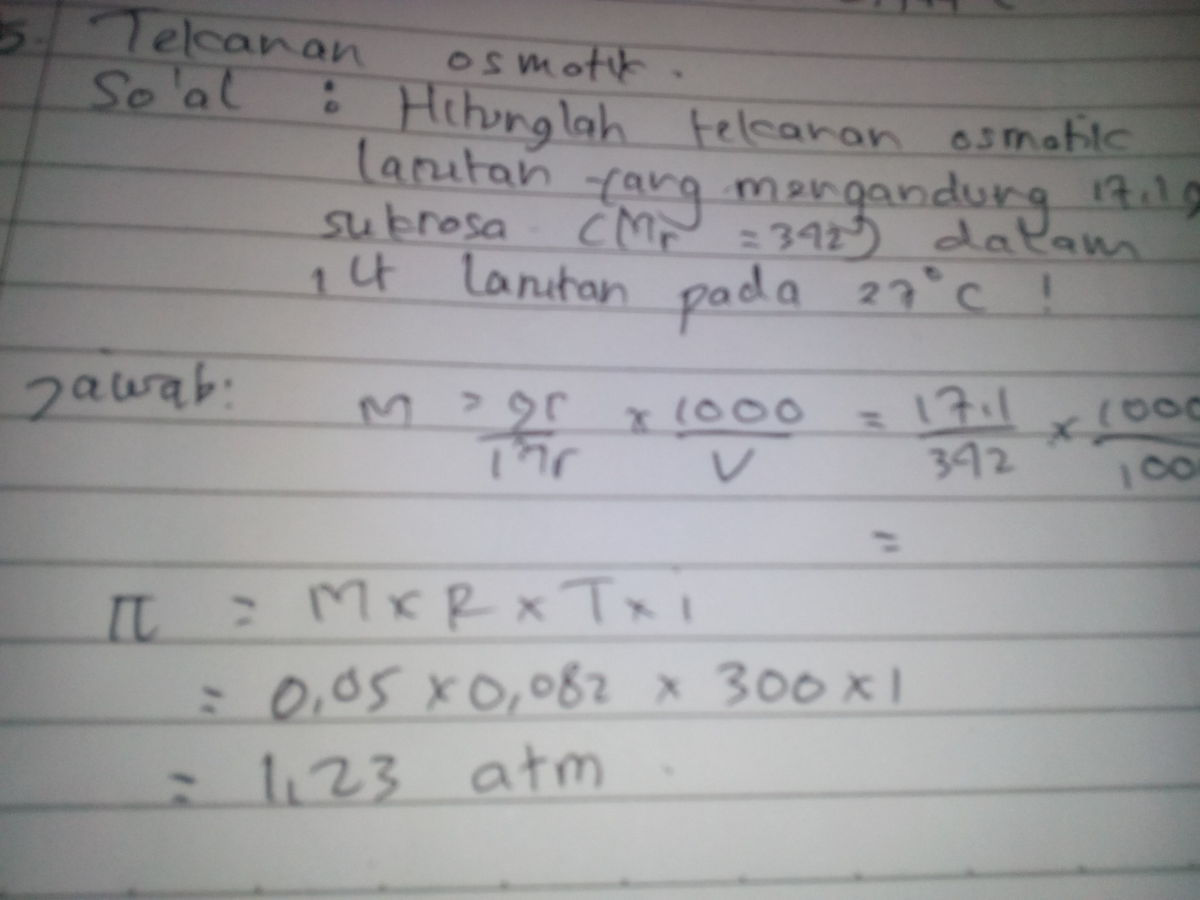 5. Tekanan osmotik.
So'al : Hitunglah tekanan osmotik
larutan yang mengandung 17.1 g
sukrosa (Mr = 342) dalam
1 Lt larutan pada 27°C !
Jawab: M = gr/Mr x 1000/V = 17.1/342 x 1000/100
=
π = M x R x T x i
= 0,05 x 0,082 x 300 x 1
= 1,23 atm.